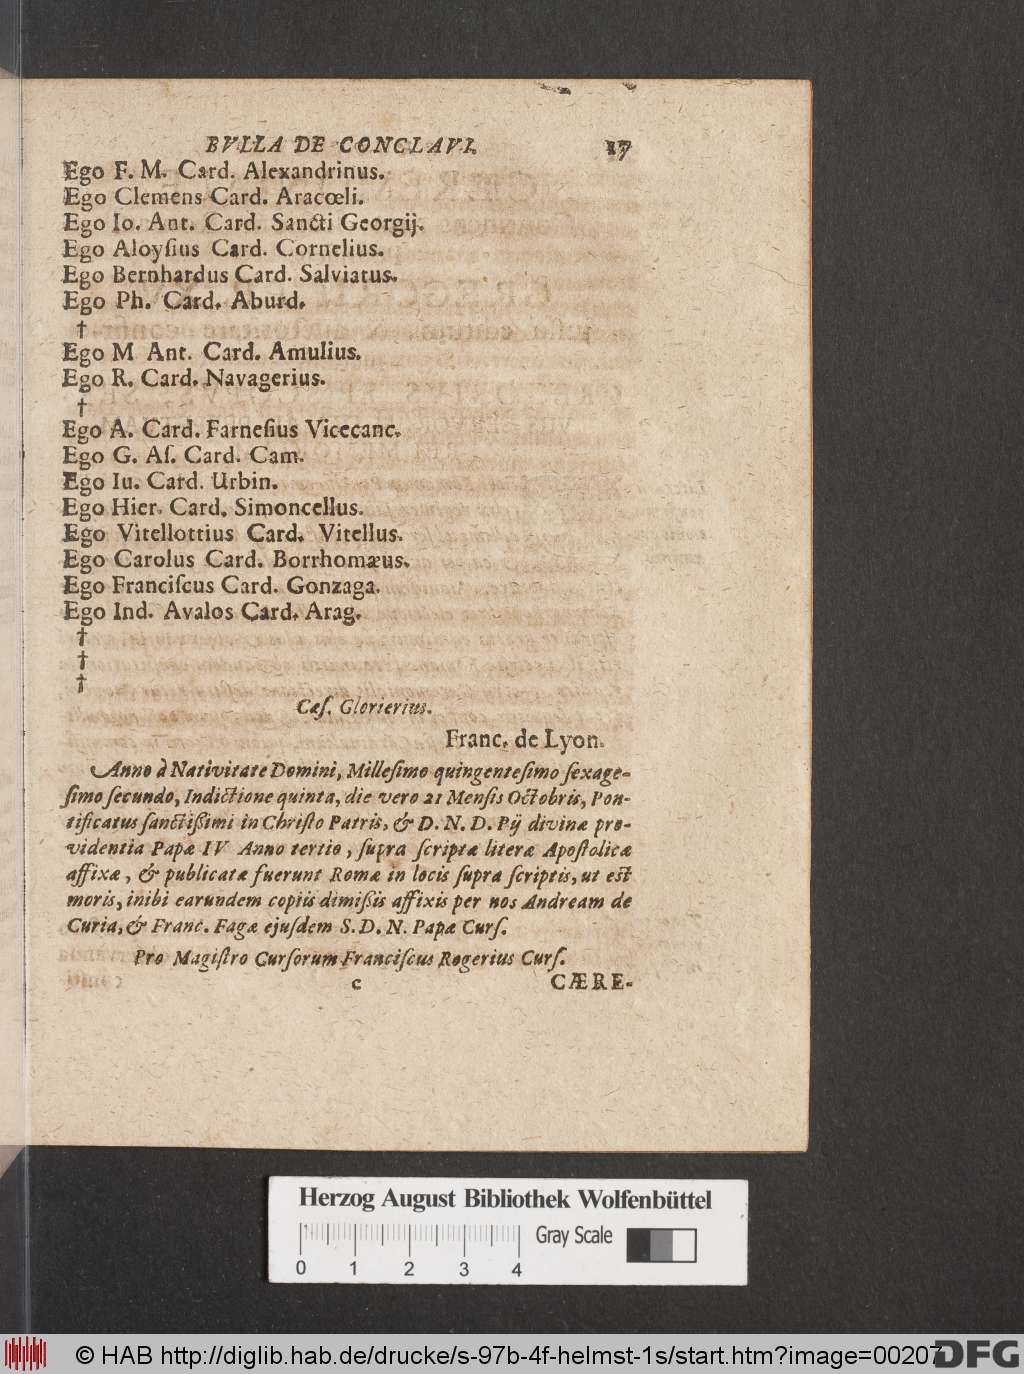 BVLLA DE CONCLAVI. 17
Ego F. M. Card. Alexandrinus.
Ego Clemens Card. Aracœli.
Ego Io. Ant. Card. Sancti Georgij.
Ego Aloyſius Card. Cornelius.
Ego Bernhardus Card. Salviatus.
Ego Ph. Card. Aburd.
†
Ego M Ant. Card. Amulius.
Ego R. Card. Navagerius.
†
Ego A. Card. Farneſius Vicecanc.
Ego G. Aſ. Card. Cam.
Ego Iu. Card. Urbin.
Ego Hier. Card. Simoncellus.
Ego Vitellottius Card. Vitellus.
Ego Carolus Card. Borrhomæus.
Ego Franciſcus Card. Gonzaga.
Ego Ind. Avalos Card. Arag.
†
†
†
Cæſ. Glorierius.
Franc. de Lyon.
Anno à Nativitate Domini, Milleſimo quingenteſimo ſexage-
ſimo ſecundo, Indictione quinta, die vero 21 Menſis Octobris, Pon-
tificatus ſanctißimi in Chriſto Patris, & D. N. D. Pij divinæ pro-
videntia Papæ IV Anno tertio, ſupra ſcriptæ literæ Apoſtolicæ
affixæ, & publicatæ fuerunt Romæ in locis ſupra ſcriptis, ut eſt
moris, inibi earundem copiis dimißis affixis per nos Andream de
Curia, & Franc. Fagæ ejuſdem S. D. N. Papæ Curſ.
Pro Magiſtro Curſorum Franciſcus Rogerius Curſ.
c CÆRE-
Herzog August Bibliothek Wolfenbüttel
Gray Scale
0 1 2 3 4
© HAB http://diglib.hab.de/drucke/s-97b-4f-helmst-1s/start.htm?image=00207
DFG